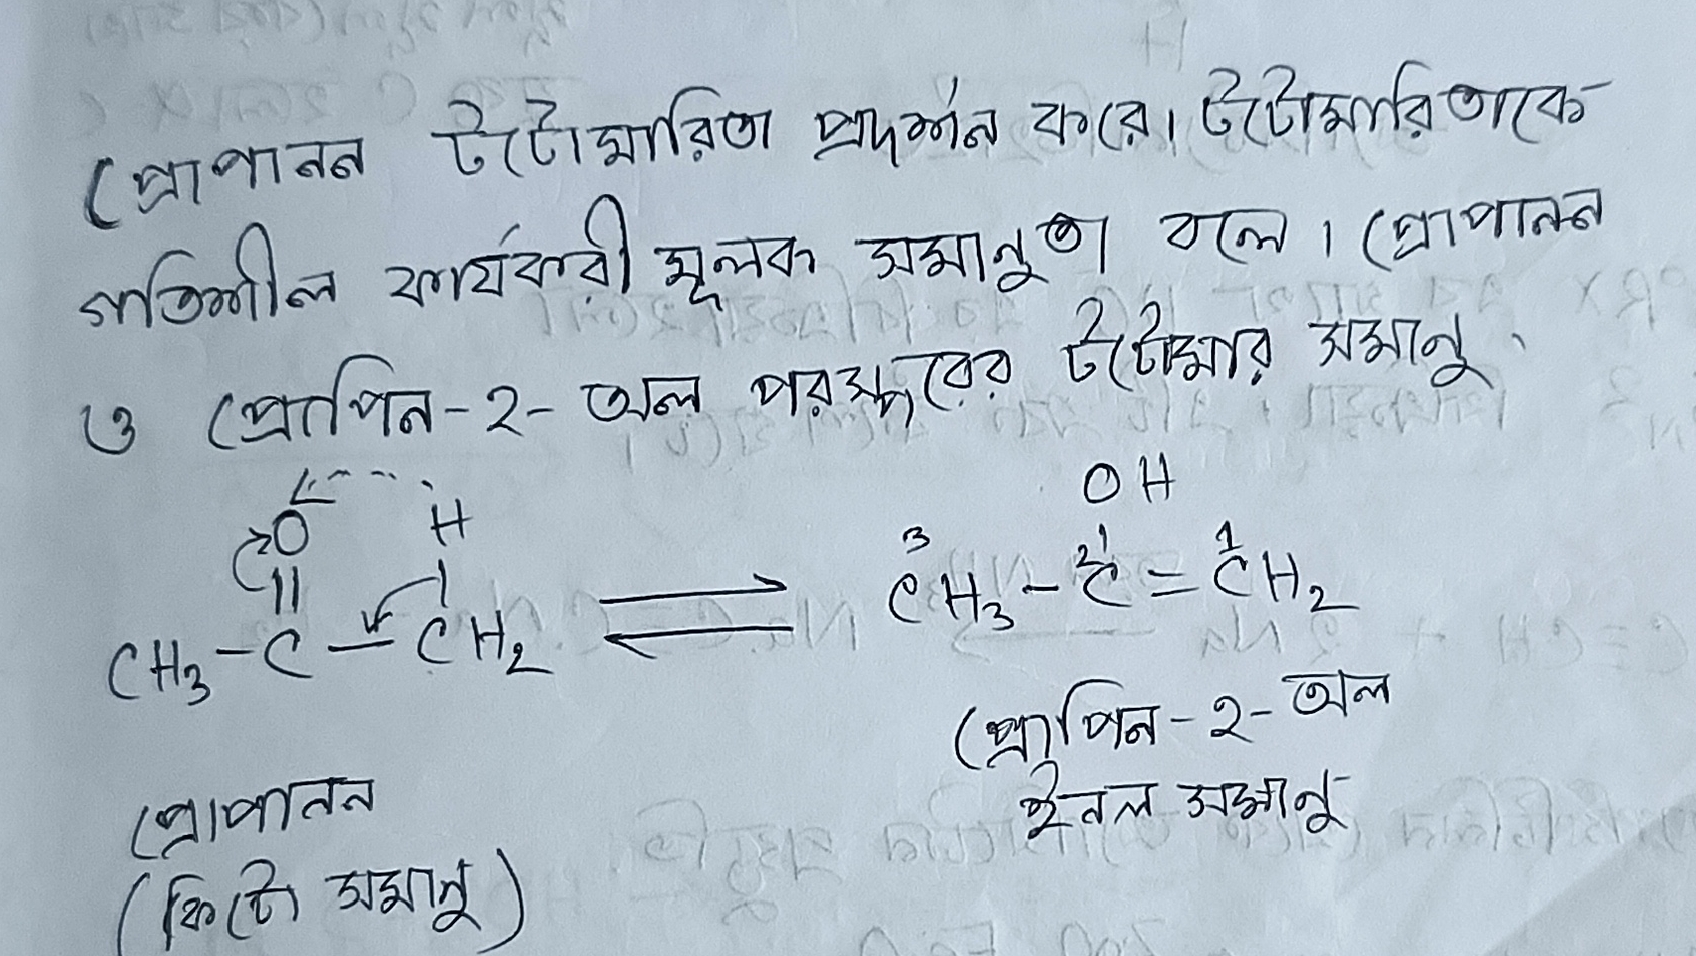 প্রোপানন টটোমারিতা প্রদর্শন করে। টটোমারিতাকে
গতিশীল কার্যকরী মূলক সমানুতা বলে। প্রোপানন
ও প্রোপিন-২-অল পরস্পরের টটোমার সমানু
O H OH
CH₃-C-CH₂ ⇌ ³CH₃-²C=¹CH₂
প্রোপিন-২-অল
প্রোপানন ইনল সমানু
(কিটো সমানু)